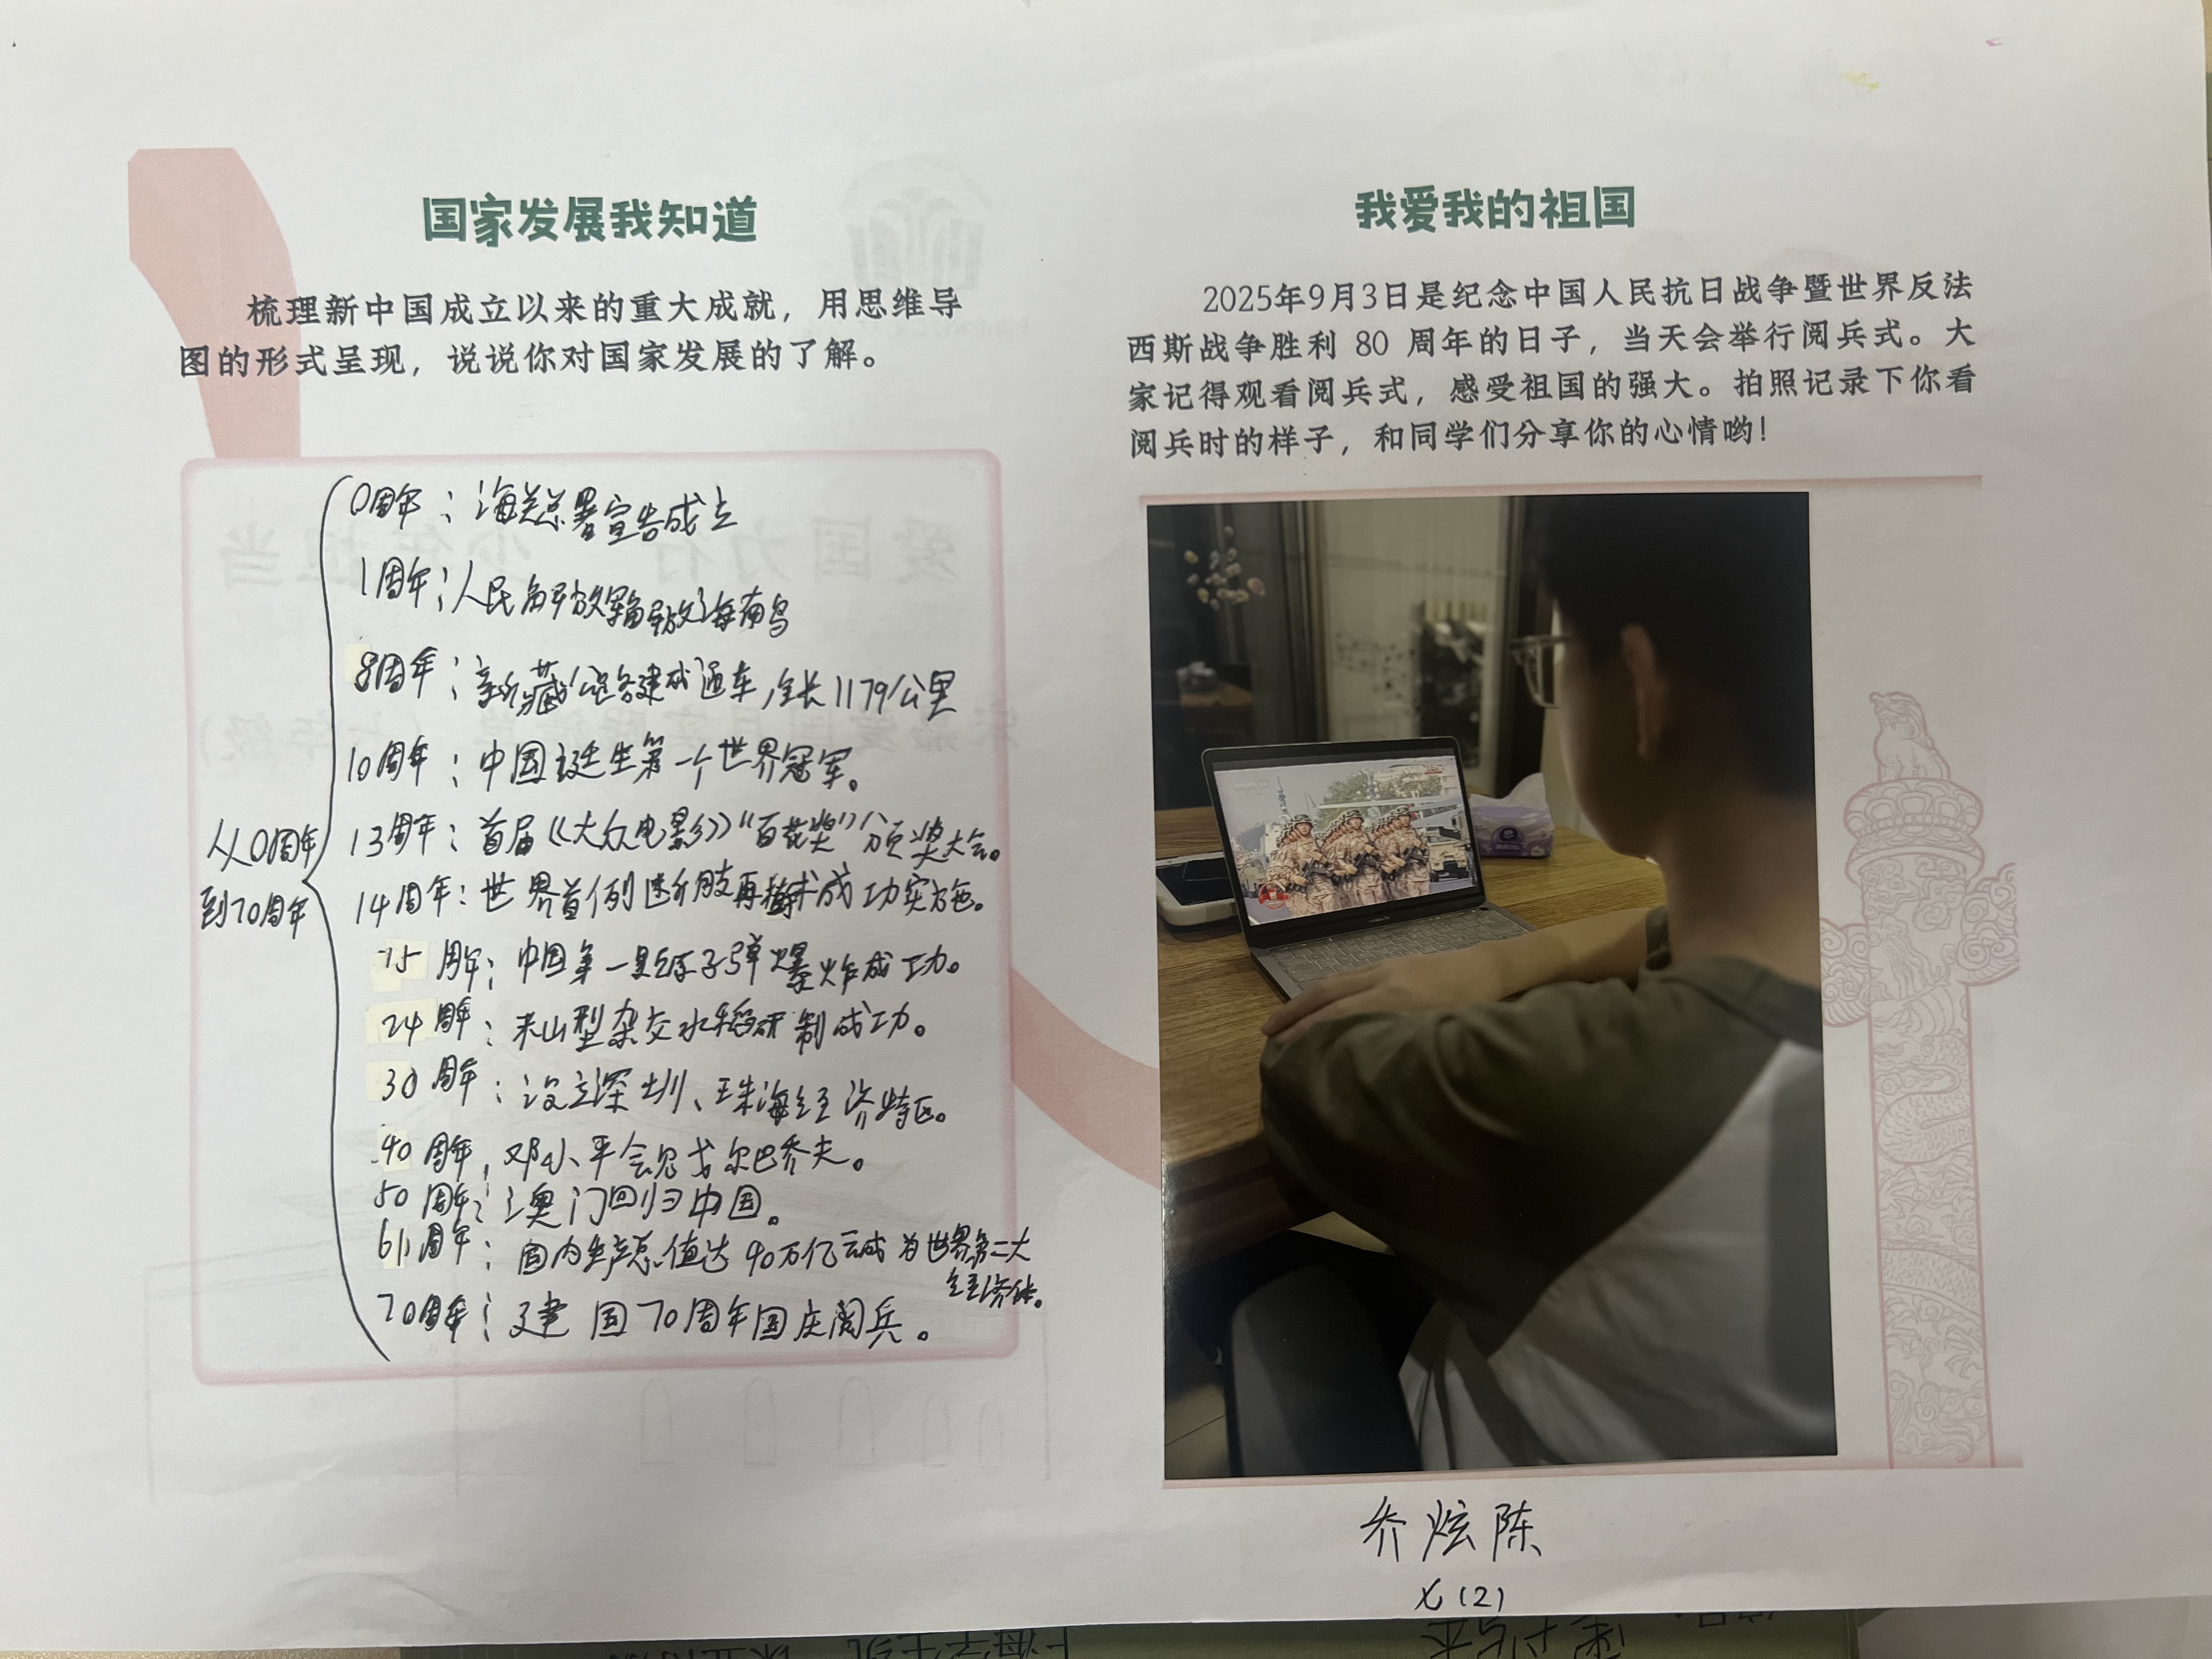 国家发展我知道
梳理新中国成立以来的重大成就，用思维导
图的形式呈现，说说你对国家发展的了解。
从0周年
到70周年
0周年：海关总署宣告成立
1周年：人民解放军解放海南岛
8周年：新藏公路建成通车，全长1179公里
10周年：中国诞生第一个世界冠军。
13周年：首届《大众电影》“百花奖”颁奖大会。
14周年：世界首例断肢再植术成功实施。
15周年：中国第一颗原子弹爆炸成功。
24周年：米山型杂交水稻研制成功。
30周年：设立深圳、珠海经济特区。
40周年，邓小平会见戈尔巴乔夫。
50周年：澳门回归中国。
61周年：国内生产总值达40万亿元成为世界第二大
经济体。
70周年：建国70周年国庆阅兵。
我爱我的祖国
2025年9月3日是纪念中国人民抗日战争暨世界反法
西斯战争胜利 80 周年的日子，当天会举行阅兵式。大
家记得观看阅兵式，感受祖国的强大。拍照记录下你看
阅兵时的样子，和同学们分享你的心情哟！
乔炫陈
七(2)